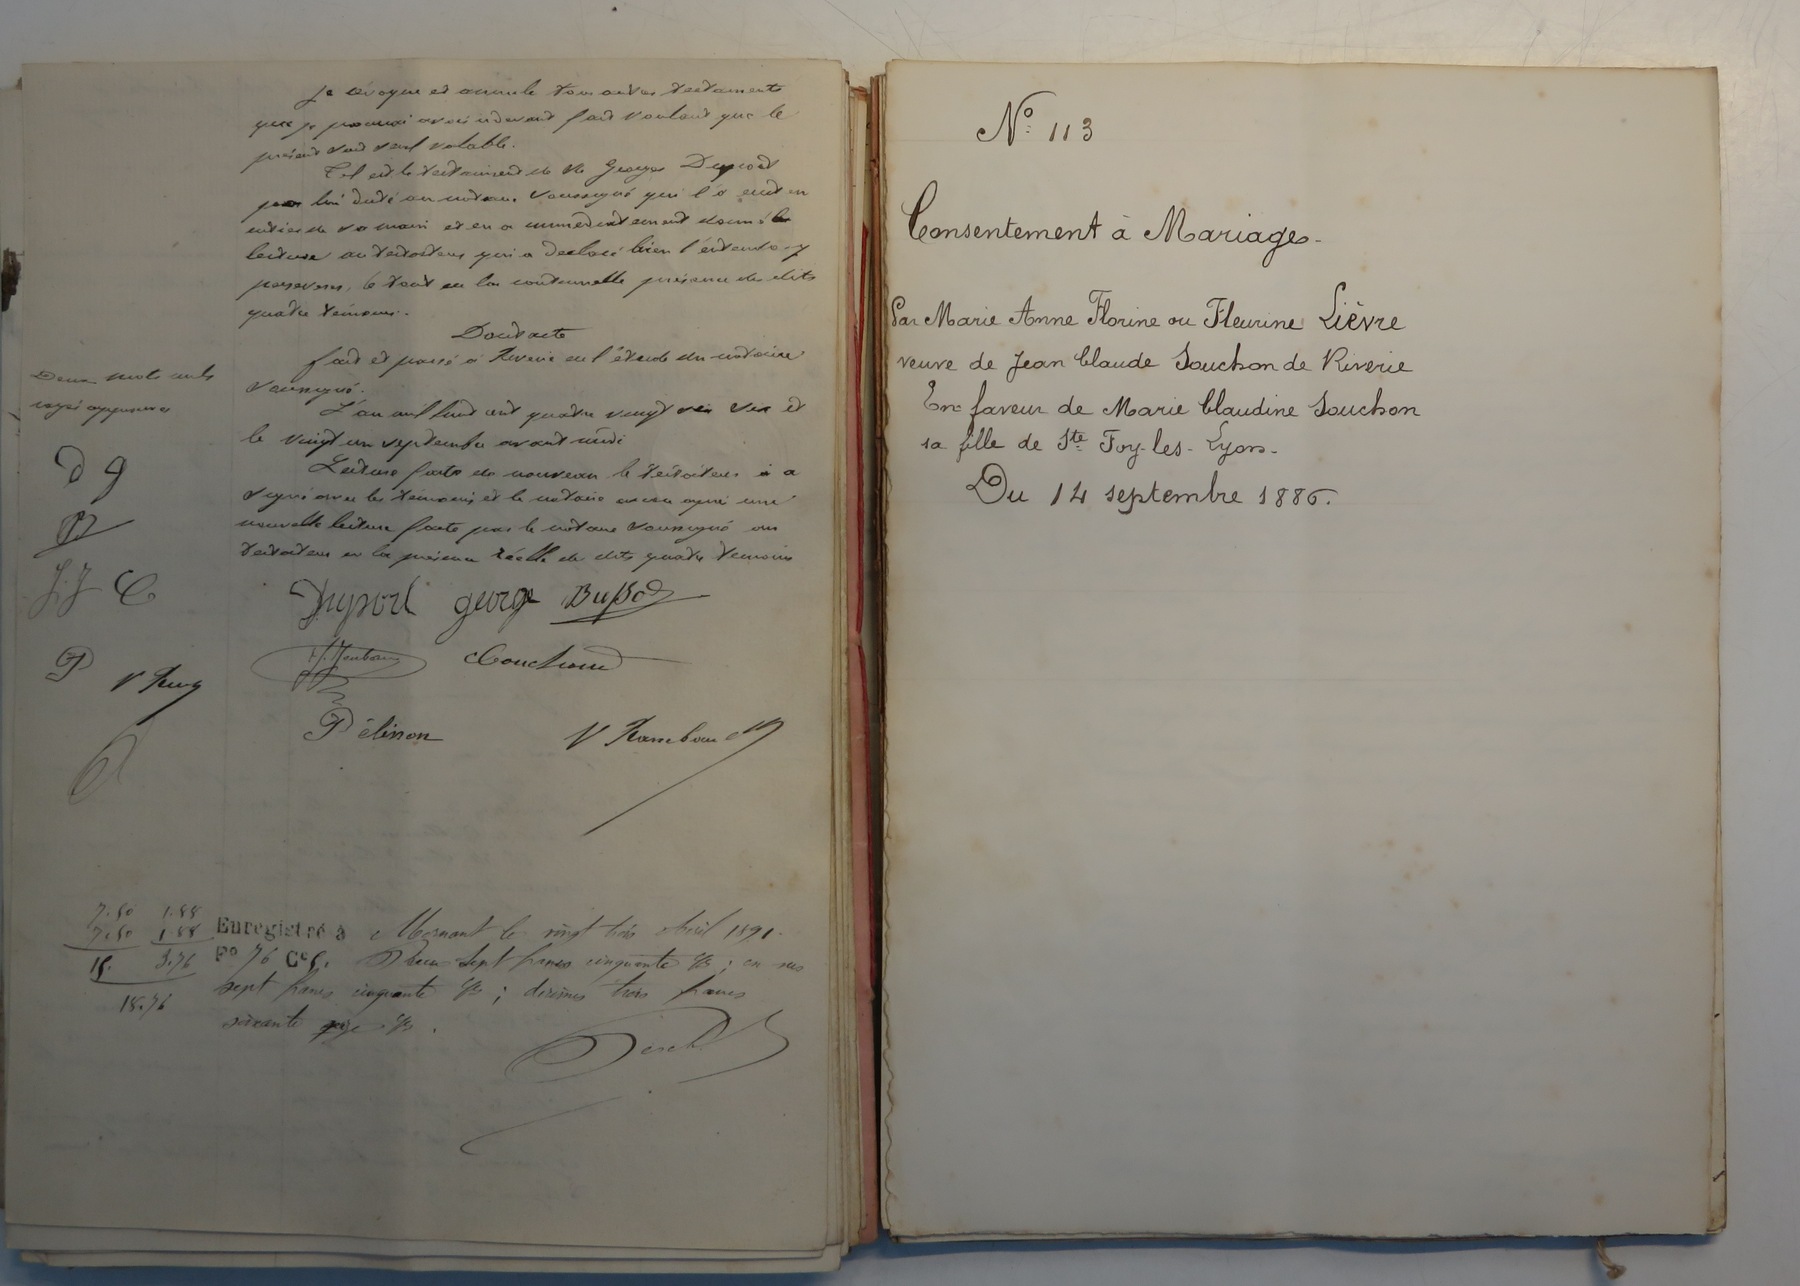 Je révoque et annule tous autres testaments
que je pourrai avoir ci devant fait voulant que le
présent soit seul valable.
Tel est le testament de Mr Georges Duport
par lui dicté au notaire soussigné qui l'a écrit en
entier de sa main et en a immédiatement donné
lecture au testateur qui a déclaré bien l'entendre y
persévérer, le tout en la continuelle présence des dits
quatre témoins.
Dont acte
fait et passé à Riverie en l'étude du notaire
soussigné.
L'an mil huit cent quatre vingt six et
le vingt un septembre avant midi
Lecture faite de nouveau le testateur a
signé avec les témoins et le notaire après une
nouvelle lecture faite par le notaire soussigné au
testateur en la présence réelle des dits quatre témoins
Deux mots nuls
rayés approuvés
D g
J. J C
P
Duport george
Pélisson
7.50 1.88
7.50 1.88
15. 3.76
18.76
Enregistré à Mornant le vingt trois avril 1891.
Fo 76 Ce 5. Reçu sept francs cinquante
sept francs cinquante ; décimes trois francs
soixante seize
No: 113
Consentement à Mariage.
Par Marie Anne Florine ou Fleurine Lièvre
veuve de Jean Claude Souchon de Riverie
En faveur de Marie Claudine Souchon
sa fille de Ste Foy-les-Lyon.
Du 14 septembre 1886.